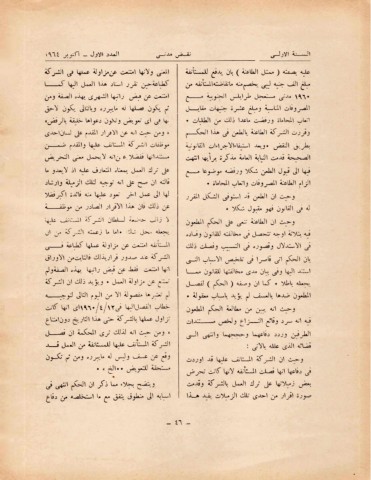 السنة الاولى
نقض مدني
العدد الاول - أكتوبر ١٩٦٤
عليه بصفته ( ممثل الطاعنة ) بان يدفع للمستأنفة
مبلغ الف جنيه ليبي
١٩٦٠ مدني مستعجل طرابلس الجنوبية مع
المصروفات المناسبة ومبلغ عشرة جنيهات مقابل
اتعاب المحاماة ورفضت ماعدا ذلك من الطلبات .
وقررت الشركة الطاعنة بالطعن في هذا الحكم
بطريق النقض وبعد استيفاء الاجراءات القانونية
الصحيحة قدمت النيابة العامة مذكرة برأيها انتهت
فيها الى قبول الطعن شكلا ورفضه موضوعا مع
الزام الطاعنة المصروفات واتعاب المحاماة .
وحيث ان الطعن قد استوفى الشكل المقرر
له في القانون فهو مقبول شكلا .
وحيث ان الطاعنة تنعى على الحكم المطعون
فيه بثلاثة اوجه تتحصل في مخالفته للقانون وفساد
في الاستدلال وقصوره في التسبيب وفصلت ذلك
بان الحكم اتى قاصرا في تلخيص الاسباب التي
استند اليها وفي بيان مدى مخالفتها للقانون مما
يجعله باطلا . كما ان وصفه ( الحكم ) لفصل
المطعون ضدها بالعسف لم يؤيد باسباب معقولة .
وحيث انه يبين من مطالعة الحكم المطعون
فيه انه سرد وقائع النزاع ولخص مستندات
الطرفين وردد دفاعهما وحججهما وانتهى الى
القضاء الذي علله بالآتي :
وحيث ان الشركة المستأنف عليها قد اوردت
في دفاعها انها فصلت المستأنفة لأنها كانت تحرض
بعض زميلاتها على ترك العمل بالشركة وقدمت
صورة اقرار من احدى تلك الزميلات يفيد هذا
المعنى ولانها امتنعت عن مزاولة عملها في الشركة
ككاتبة حين تقرر اسناد هذا العمل اليها كما
امتنعت عن قبض راتبها الشهري بهذه الصفة ومن
ثم يكون فصلها له مايبرره وبالتالي لايحق
لها في اى تعويض وتكون دعواها خليقة بالرفض.
« ومن حيث انه عن الاقرار المقدم على لسان احدى
موظفات الشركة المستأنف عليها والقدم ضمن
مستنداتها فضلا عن انه لايحمل معنى التحريض
على ترك العمل بمعناه المتعارف عليه اذ لايعدو ما
قالته ان سح على انه توجيه لتلك الزميلة وارشاد
لها الى عمل آخر تعود عليها منه فائدة اكبر فضلا
عن ذلك فان هذا الاقرار الصادر من موظفة
لا تزال خاضعة لسلطان الشركة المستأنف عليها
يجعله محل شك . واما ما زعمته الشركة من ان
المستأنفة لم تمتنع عن مزاولة عملها ككاتبة في
الشركة عند صدور قرار بذلك فالثابت من الاوراق
انها امتنعت فقط عن قبض راتبها بهذه الصفة ولم
تمتنع عن مزاولة العمل . ويؤيد ذلك ان الشركة
لم تعتبرها مفصولة الا من اليوم التالي لتوجيه
خطاب الفصل اليها في ١٢/٤/١٩٦٠ اى انها كانت
تزاول عملها بالشركة حتى هذا التاريخ دون امتناع
« ومن حيث انه لذلك ترى المحكمة ان فصل
الشركة المستأنف عليها للمستأنفة من العمل قد
وقع عن عسف وليس له مايبرره ومن ثم تكون
مستحقة للتعويض ..» الخ . »
ويتضح بجلاء مما ذكر ان الحكم انتهى في
اسبابه الى منطوق يتفق مع ما استخلصه من دفاع
- ٤٦ -